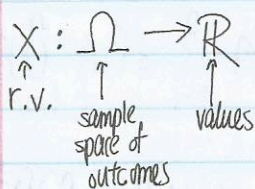 X : Ω → ℝ
r.v.
sample
space of
outcomes
values